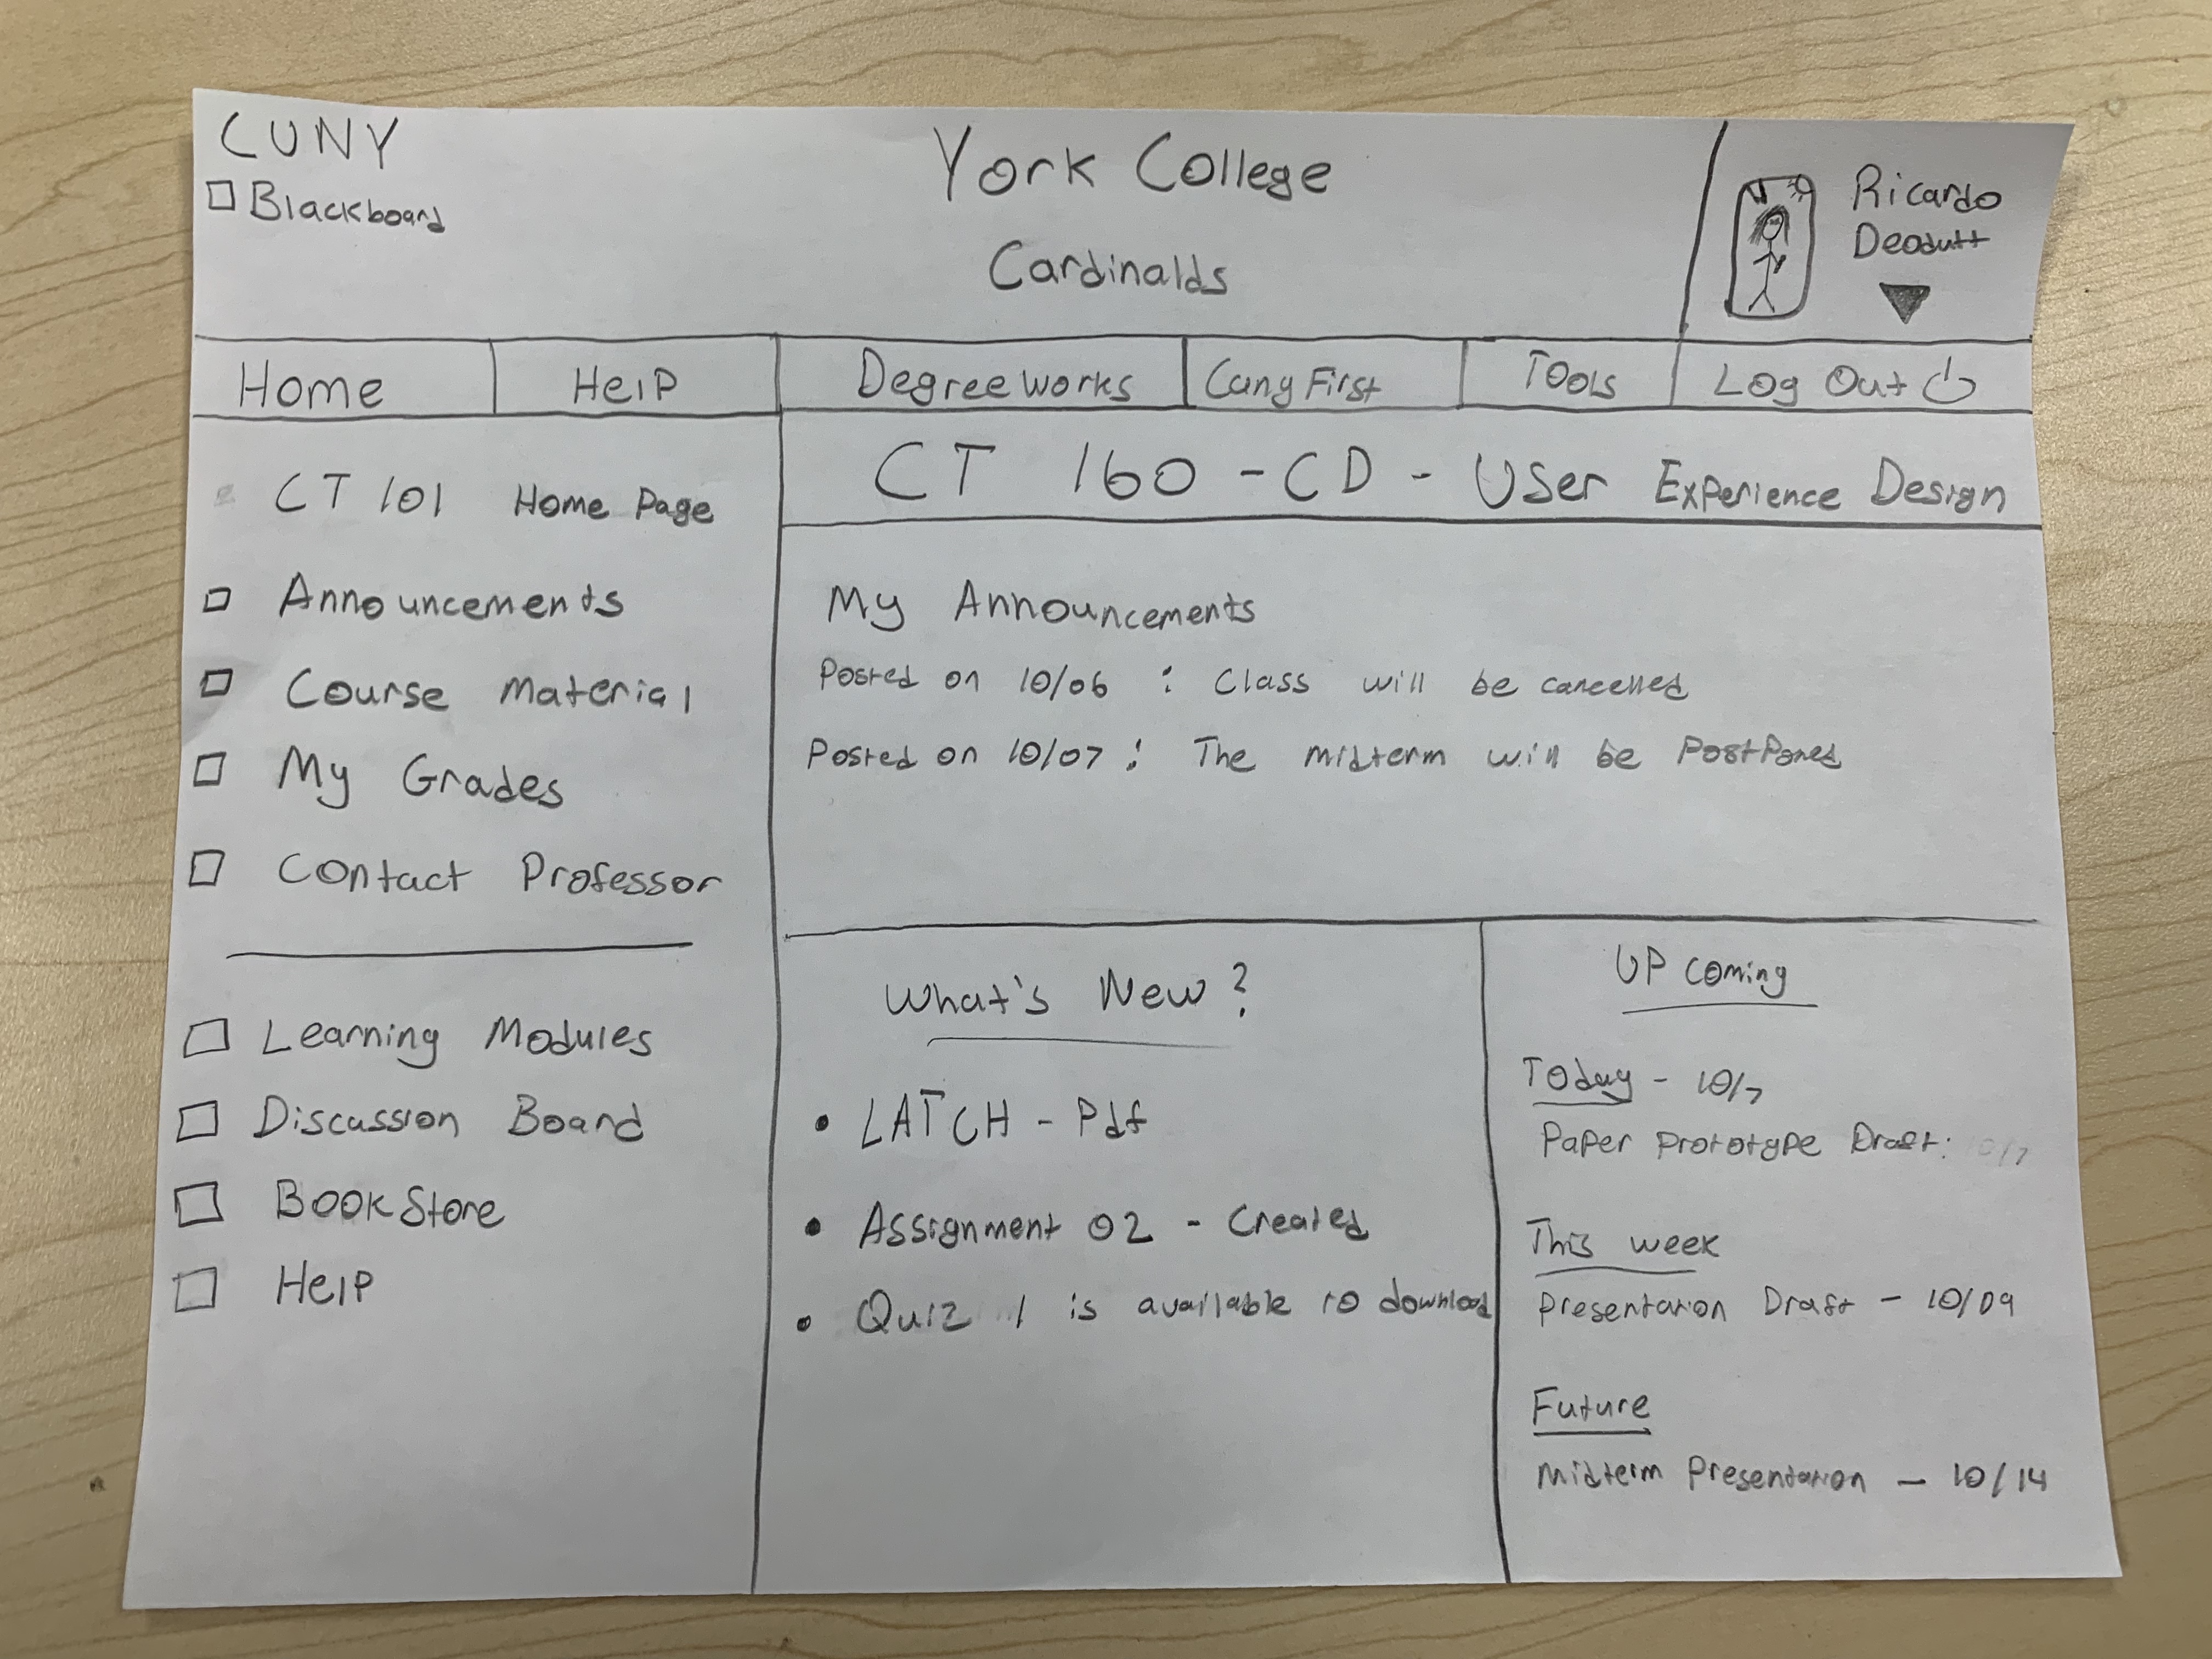 CUNY
Blackboard
York College
Cardinalds
Ricardo
Deodutt
Home
Help
DegreeWorks
CunyFirst
Tools
Log Out
CT 101 Home Page
Announcements
Course Material
My Grades
Contact Professor
Learning Modules
Discussion Board
BookStore
Help
CT 160 - CD - User Experience Design
My Announcements
Posted on 10/06 : Class will be cancelled
Posted on 10/07 : The midterm will be Postponed
What's New?
• LATCH - Pdf
• Assignment 02 - Created
• Quiz 1 is available to download
UPcoming
Today - 10/7
Paper Prototype Draft:
This week
Presentation Draft - 10/09
Future
Midterm Presentation - 10/14